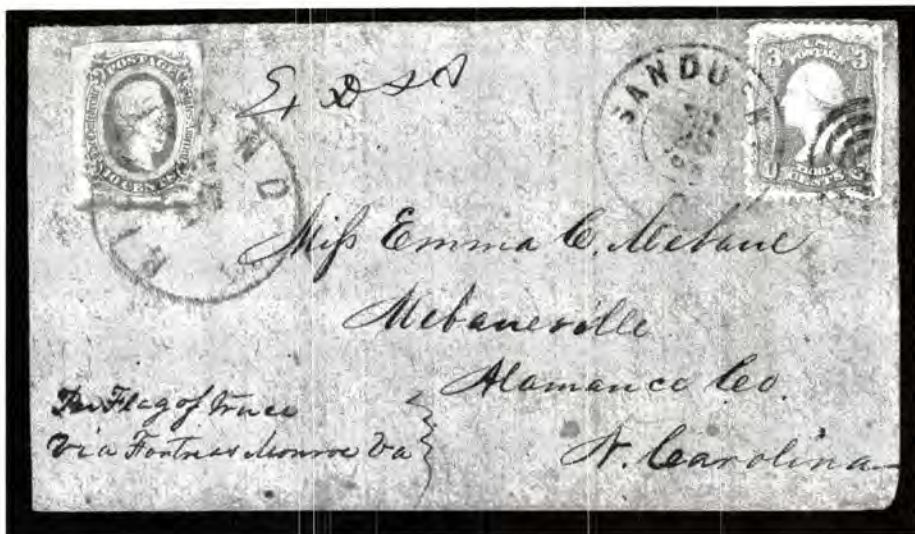 POSTAGE
10 CENTS
SANDU
3 POSTAGE 3
CENTS
ND
Miss Emma C. Mebane
Mebanesville
Alamance Co.
N. Carolina
Per Flag of truce
Via Fortress Monroe Va